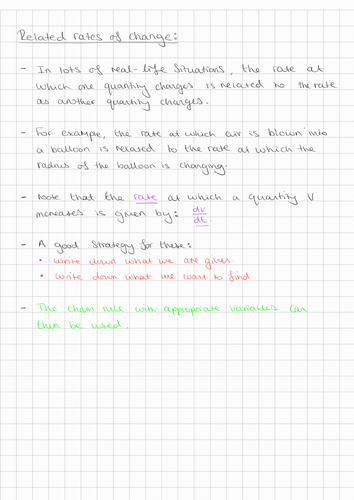 Related rates of change:
- In lots of real-life situations, the rate at
which one quantity changes is related to the rate
as another quantity changes.
- For example, the rate at which air is blown into
a balloon is related to the rate at which the
radius of the balloon is changing.
- Note that the rate at which a quantity V
increases is given by: dv/dt
- A good strategy for these:
• write down what we are given
• write down what we want to find.
- The chain rule with appropriate variables can
then be used.